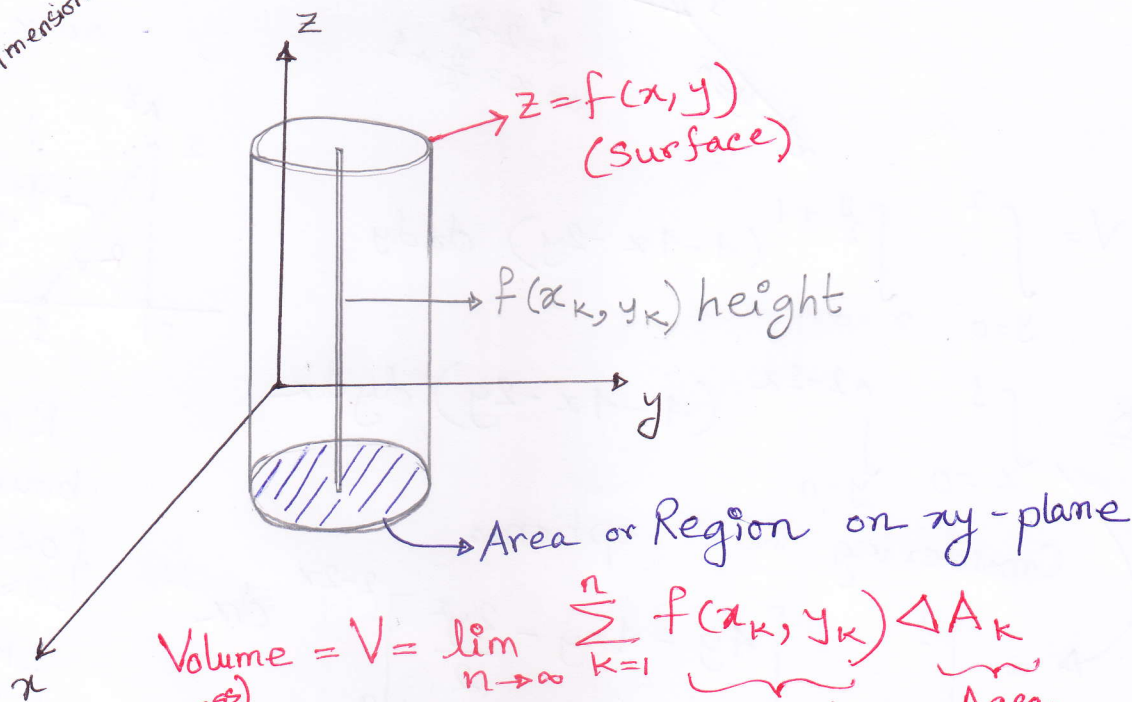 z
z = f(x, y)
(surface)
f(x_k, y_k) height
y
Area or Region on xy-plane
x
Volume = V = lim_{n→∞} ∑_{k=1}^{n} f(x_k, y_k) ΔA_k
Area